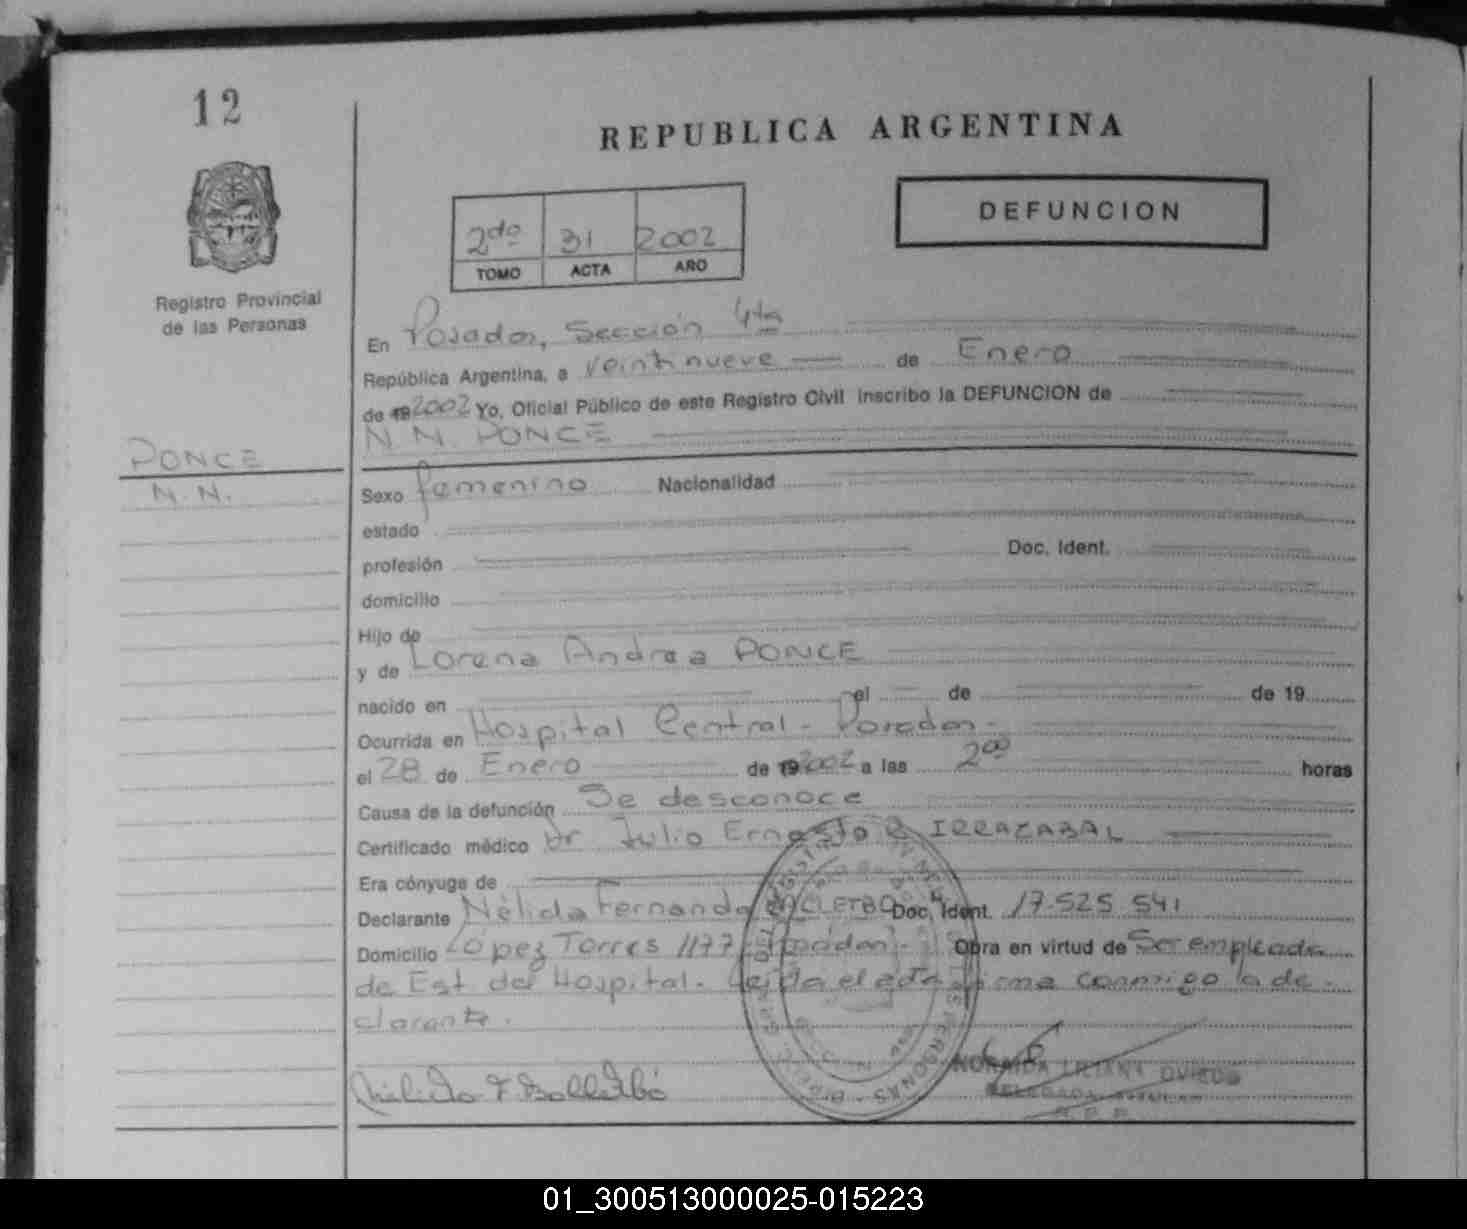 12
REPUBLICA ARGENTINA
DEFUNCION
2do 31 2002
TOMO ACTA AÑO
Registro Provincial
de las Personas
En Posadas, Sección 4ta
República Argentina, a veintinueve de Enero
de 19 2002 Yo, Oficial Público de este Registro Civil inscribo la DEFUNCION de
N.N. PONCE
PONCE
N.N.
Sexo femenino Nacionalidad
estado
profesión Doc. Ident.
domicilio
Hijo de
y de Lorena Andrea PONCE
nacido en el de de 19
Ocurrida en Hospital Central - Posadas -
el 28 de Enero de 19 2002 a las 2 00 horas
Causa de la defunción Se desconoce
Certificado médico Dr Julio Ernesto R IRRAZABAL
Era cónyuge de
Declarante Nélida Fernanda Doc. Ident. 17.525 541
Domicilio López Torres 1177 - Posadas - Obra en virtud de Ser empleada
de Est. del Hospital. Leida el acta firma conmigo la de-
clarante.
NORAIDA LILIANA OVIEDO
DELEGADA TITULAR
R.P.P.
01_300513000025-015223